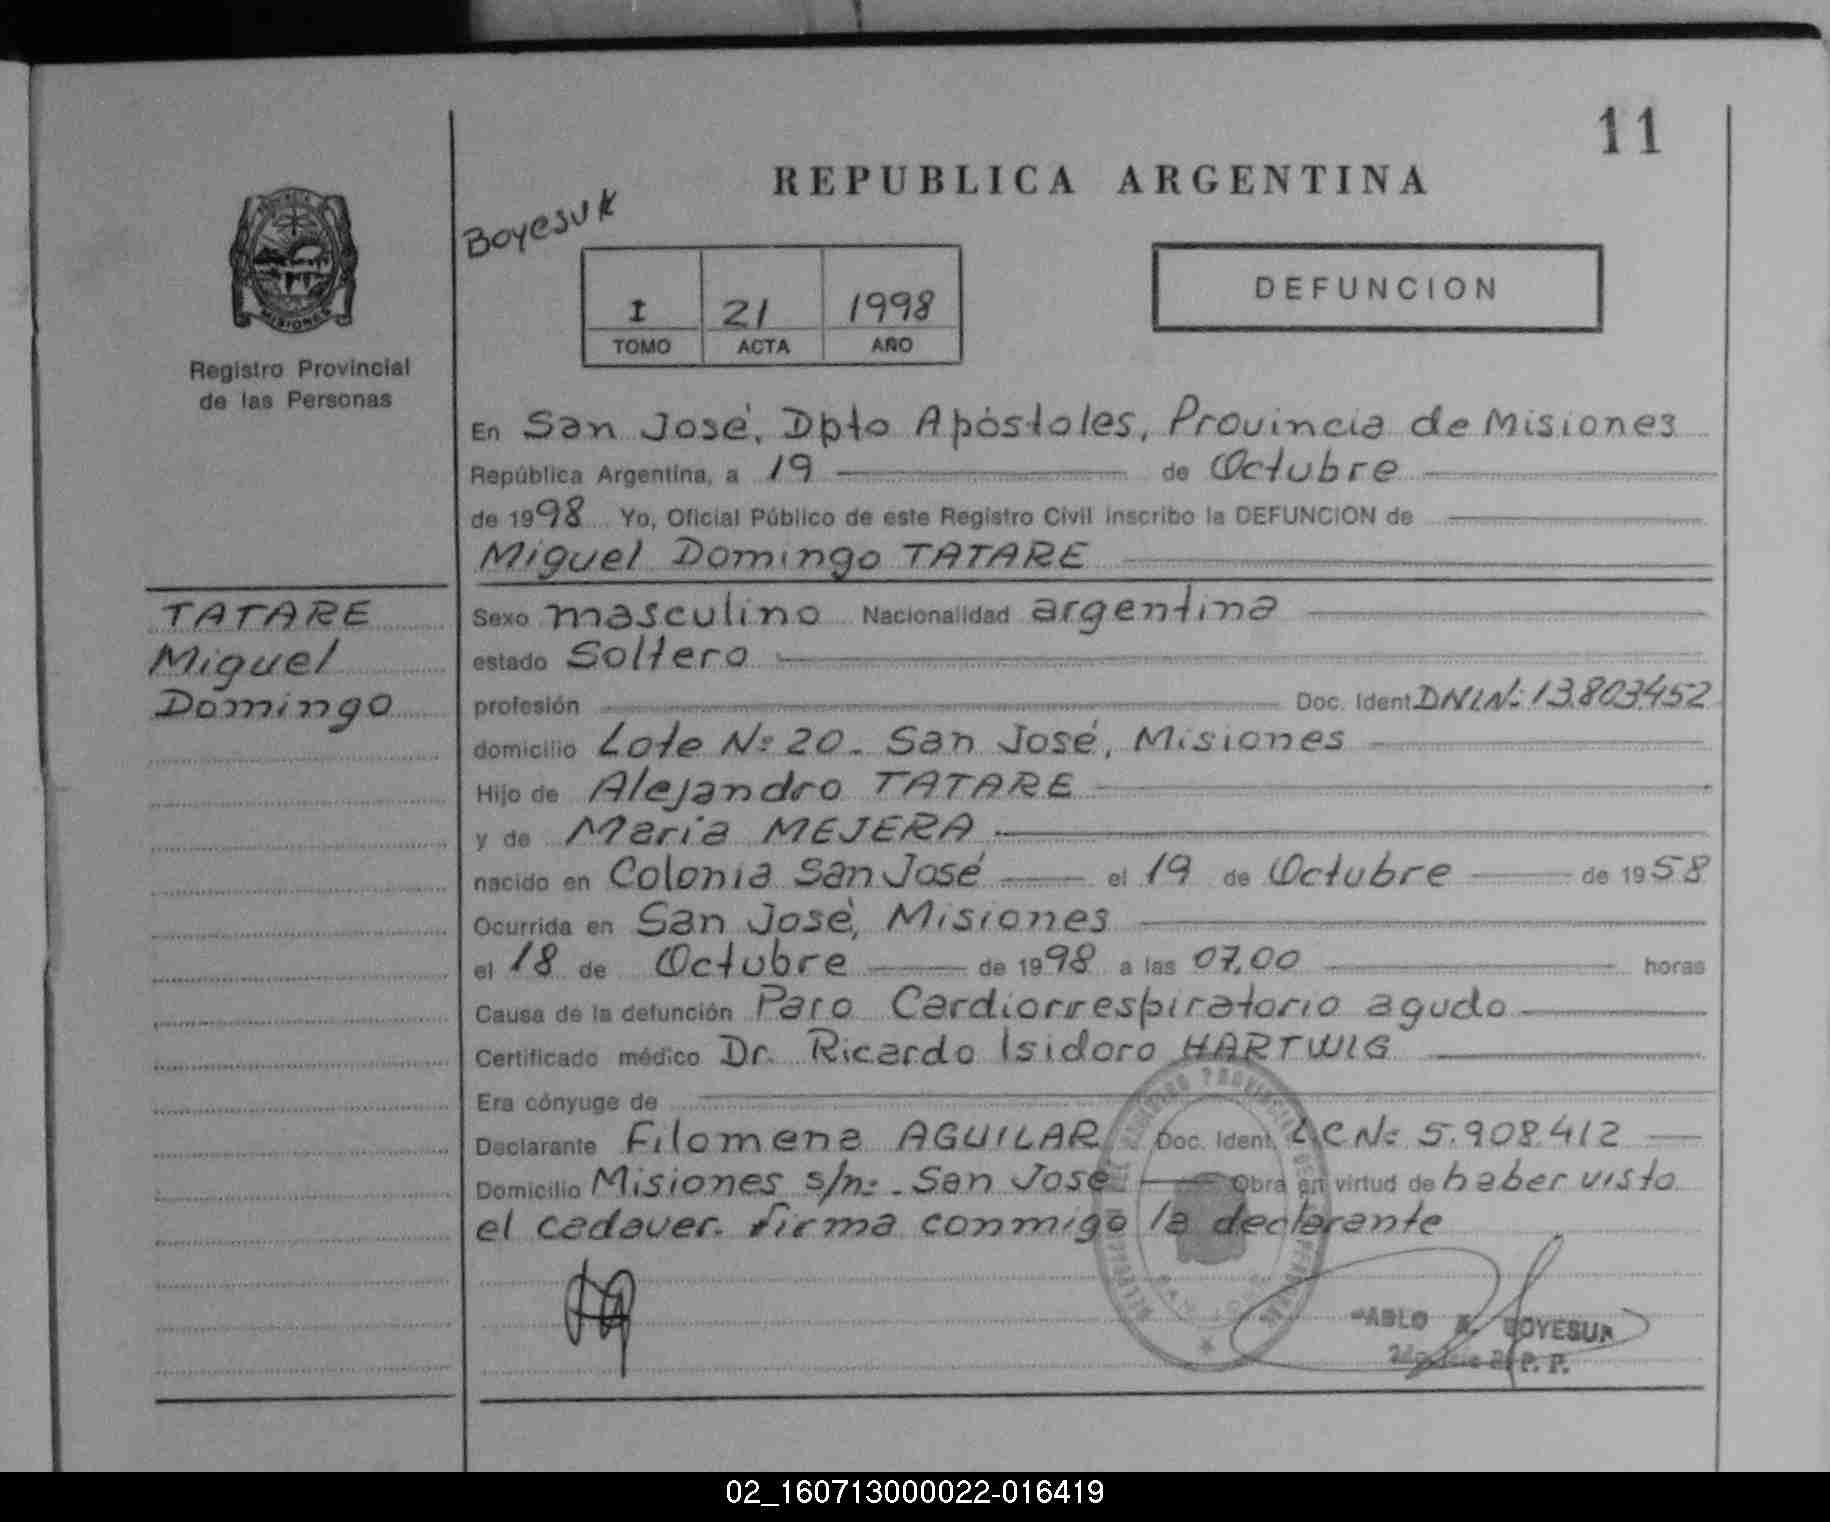 11
REPUBLICA ARGENTINA
Boyesuk
MISIONES
Registro Provincial
de las Personas
I 21 1998
TOMO ACTA AÑO
DEFUNCION
En San José, Dpto Apóstoles, Provincia de Misiones
República Argentina, a 19 de Octubre
de 1998 Yo, Oficial Público de este Registro Civil inscribo la DEFUNCION de
Miguel Domingo TATARE
TATARE
Miguel
Domingo
Sexo masculino Nacionalidad argentina
estado Soltero
profesión Doc. Ident DNIN: 13.803.452
domicilio Lote Nº 20 - San José, Misiones
Hijo de Alejandro TATARE
y de Maria MEJERA
nacido en Colonia San José el 19 de Octubre de 1958
Ocurrida en San José, Misiones
el 18 de Octubre de 1998 a las 07,00 horas
Causa de la defunción Paro Cardiorrespiratorio agudo
Certificado médico Dr. Ricardo Isidoro HARTWIG
Era cónyuge de
Declarante Filomena AGUILAR Doc. Ident. LC Nº 5.908.412
Domicilio Misiones s/nº - San José Obra en virtud de haber visto
el cadaver. firma conmigo la declarante
PABLO BOYESUK
R. P. P.
02_160713000022-016419